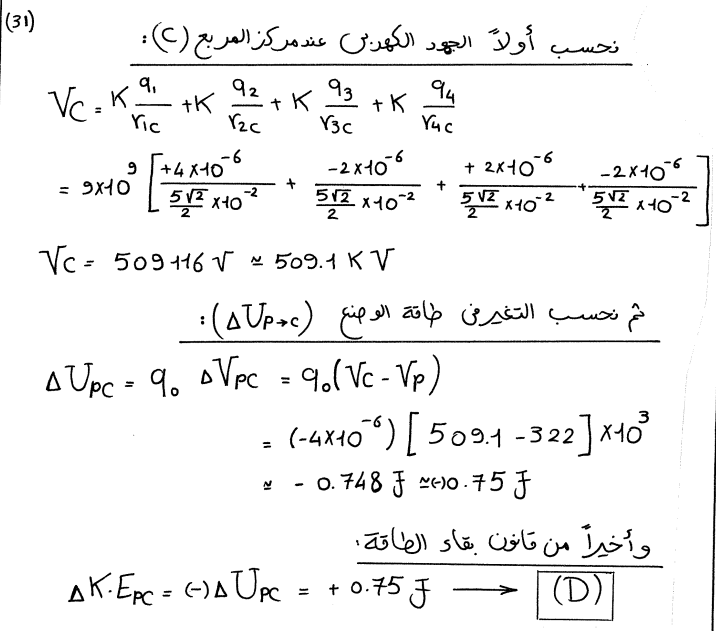 (31)
نحسب أولاً الجهد الكهربي عند مركز المربع (C):
Vc = K q₁/r₁c + K q₂/r₂c + K q₃/r₃c + K q₄/r₄c
= 9×10⁹ [ +4×10⁻⁶ / (5√2/2 ×10⁻²) + -2×10⁻⁶ / (5√2/2 ×10⁻²) + +2×10⁻⁶ / (5√2/2 ×10⁻²) + -2×10⁻⁶ / (5√2/2 ×10⁻²) ]
Vc = 509116 V ≃ 509.1 KV
ثم نحسب التغير في طاقة الوضع (ΔU_P→C):
ΔU_PC = q₀ ΔV_PC = q₀(Vc - Vp)
= (-4×10⁻⁶) [509.1 - 322] ×10³
≃ - 0.748 J ≃(-)0.75 J
وأخيراً من قانون بقاء الطاقة:
ΔK.E_PC = (-)ΔU_PC = + 0.75 J ⟶ (D)